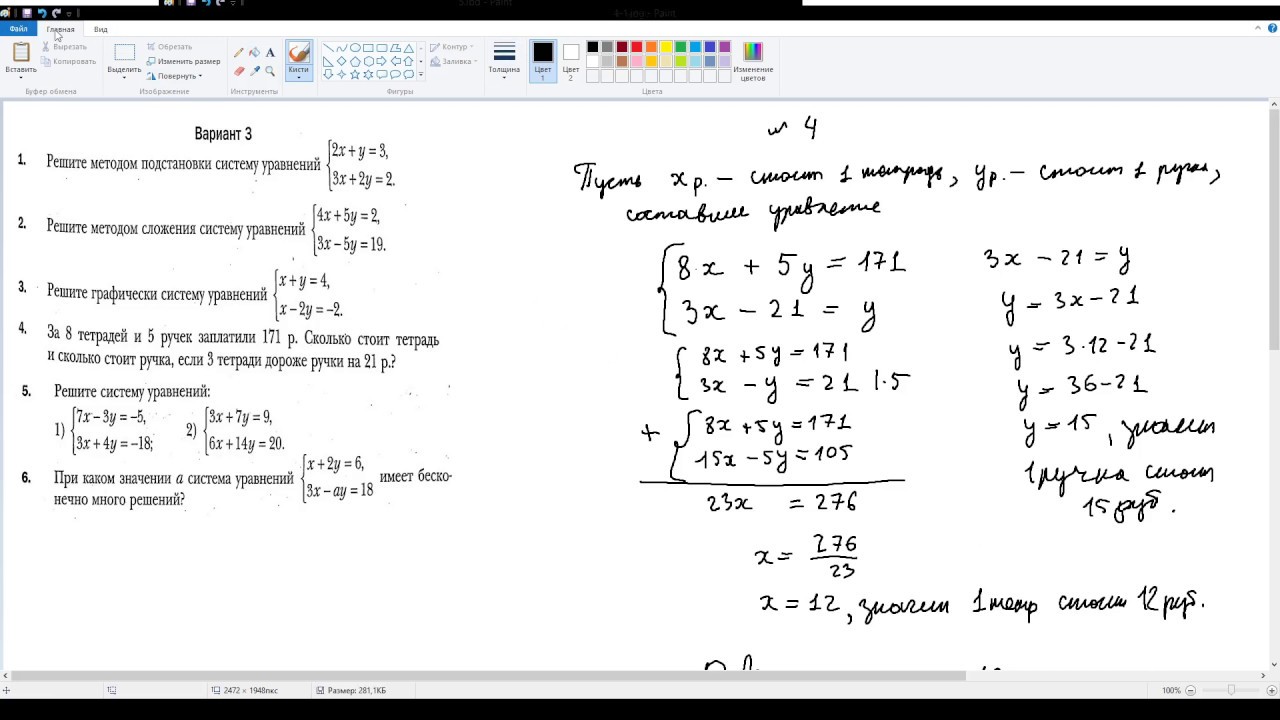 Файл Главная Вид
Вставить
Вырезать
Копировать
Буфер обмена
Выделить
Обрезать
Изменить размер
Повернуть
Изображение
Инструменты
Кисти
Контур
Заливка
Фигуры
Толщина
Цвет 1
Цвет 2
Изменение цветов
Цвета
Вариант 3
1. Решите методом подстановки систему уравнений {2x + y = 3,
3x + 2y = 2.
2. Решите методом сложения систему уравнений {4x + 5y = 2,
3x – 5y = 19.
3. Решите графически систему уравнений {x + y = 4,
x – 2y = –2.
4. За 8 тетрадей и 5 ручек заплатили 171 р. Сколько стоит тетрадь
и сколько стоит ручка, если 3 тетради дороже ручки на 21 р.?
5. Решите систему уравнений:
1) {7x – 3y = –5, 2) {3x + 7y = 9,
3x + 4y = –18; 6x + 14y = 20.
6. При каком значении a система уравнений {x + 2y = 6,
3x – ay = 18 имеет беско-
нечно много решений?
№ 4
Пусть x р. – стоит 1 тетрадь, y р. – стоит 1 ручка,
составим уравнение
{8·x + 5y = 171
3x – 21 = y
{8x + 5y = 171
3x – y = 21 |·5
+ {8x + 5y = 171
15x – 5y = 105
23x = 276
x = 276/23
x = 12, значит 1 тетр стоит 12 руб.
3x – 21 = y
y = 3x – 21
y = 3·12 – 21
y = 36 – 21
y = 15, значит
1 ручка стоит
15 руб.
2472 × 1948пкс
Размер: 281,1КБ
100%